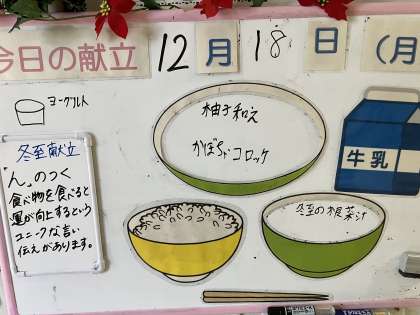 今日の献立 12月18日(月
ヨーグルト
柚子和え
かぼちゃコロッケ
牛乳
冬至献立
ん"のつく
食べ物を食べると
運が向上するという
ユニークな言い
伝えがあります。
冬至の根菜汁